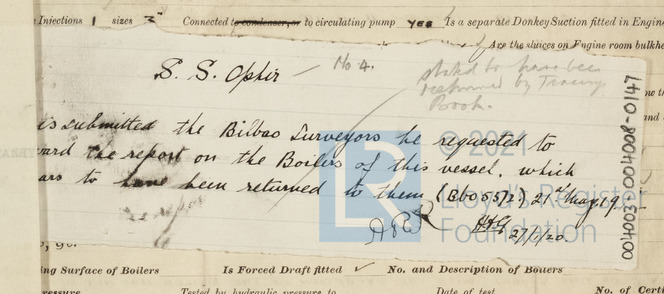 Injections 1 sizes 3" Connected to condenser, or to circulating pump yes Is a separate Donkey Suction fitted in Engine
Are the sluices on Engine room bulkhe
S. S. Ophir — No 4.
stated to have been
returned by Tracing
Book.
is submitted the Bilbao Surveyors be requested to
ward the report on the Boilers of this vessel, which
ars to have been returned to them (Bbo 5572) 21st May, 19.
27/1/20.
© 2021
Lloyd's Register
Foundation
004003-004008-0147
ng Surface of Boilers Is Forced Draft fitted ✓ No. and Description of Boilers
ressure Tested by hydraulic pressure to Date of test No. of Certi